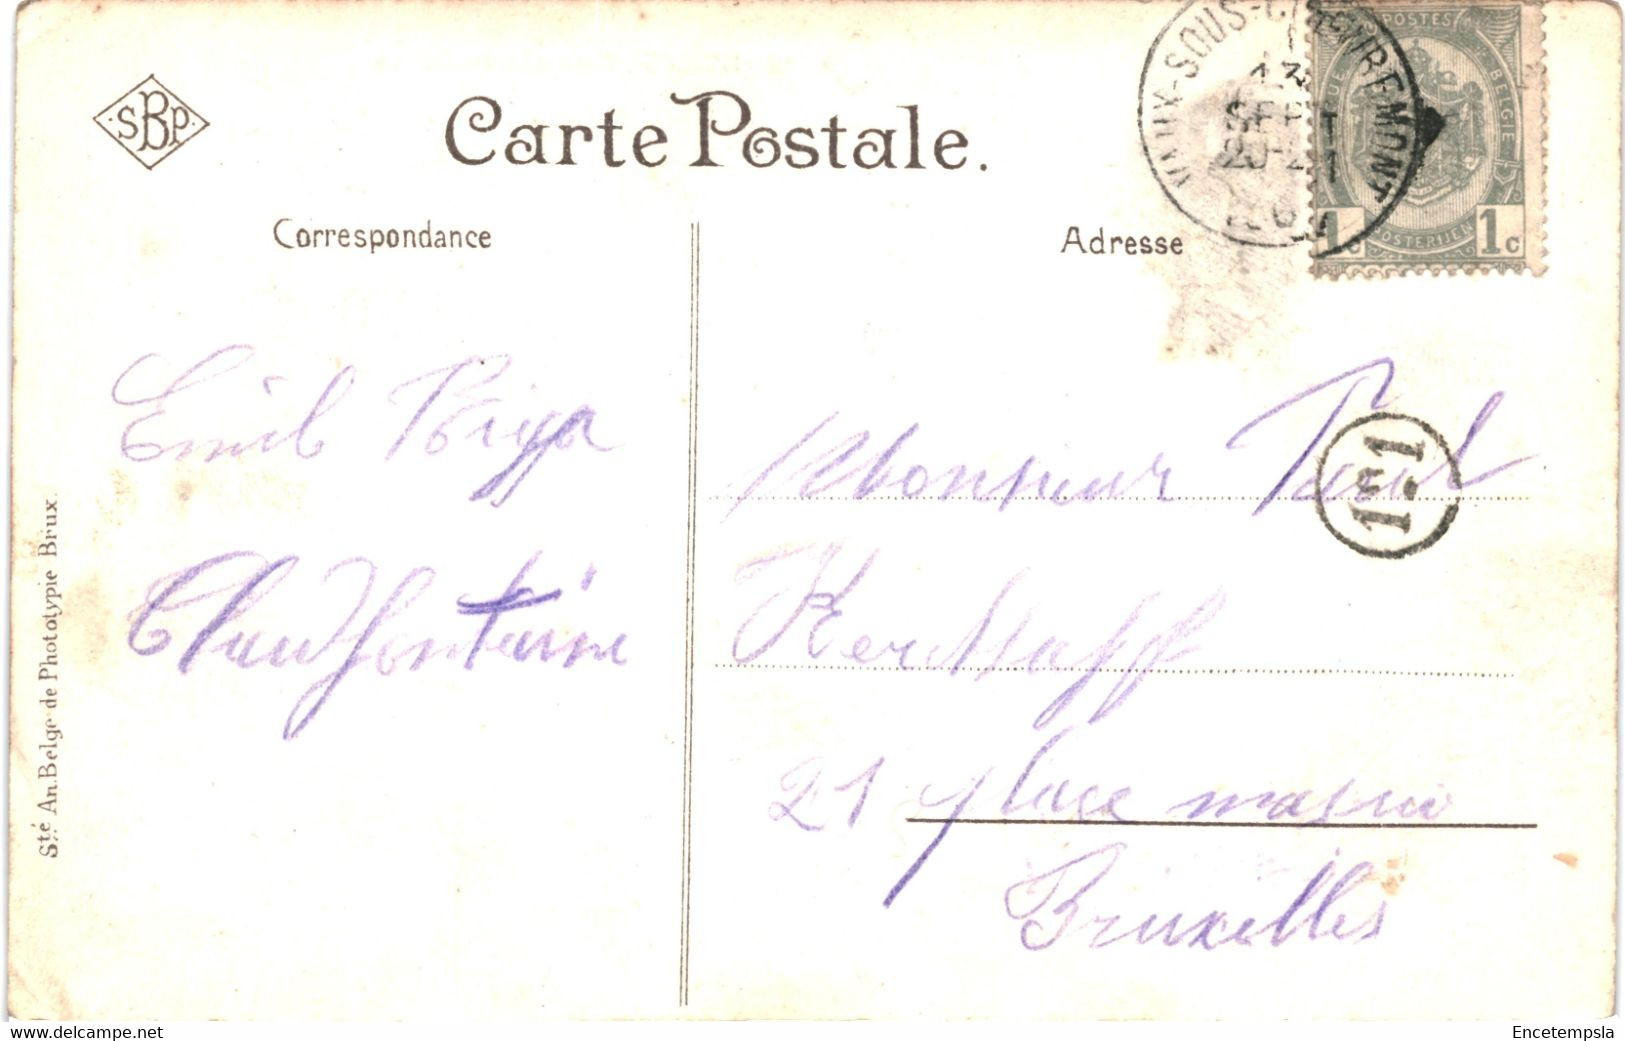 SBP
Carte Postale.
VAUX-SOUS-CHEVREMONT
13
SEPT
20-21
POSTES
BELGIQUE BELGIE
POSTERIJEN
1c
1c
Correspondance
Adresse
Emile
Chaudfontaine
Monsieur Paul
1
1
Kerckhoff
21 place
Bruxelles
Sté An. Belge de Phototypie Brux.
www.delcampe.net
Encetempsla